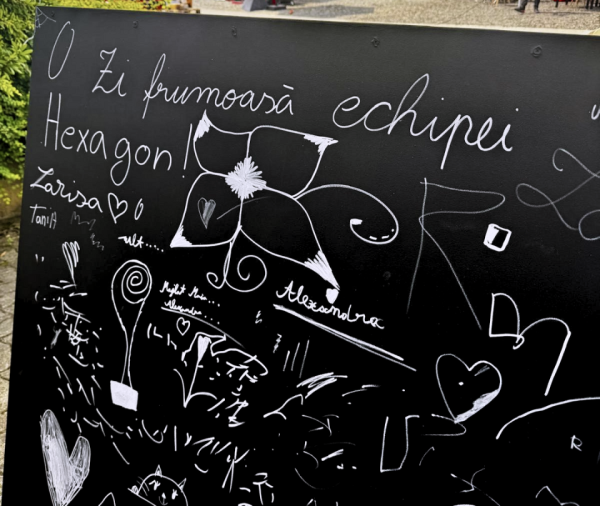 O Zi frumoasă echipei
Hexagon!
Larisa
Tania
Alexsandra
R